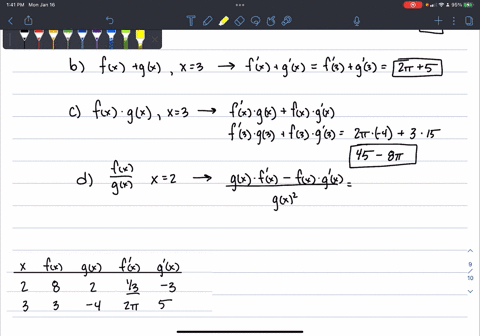 1:41 PM Mon Jan 16
95%
b) f(x) + g(x), x=3 → f'(x) + g'(x) = f'(3) + g'(3) = 2π + 5
c) f(x) · g(x), x=3 → f'(x) · g(x) + f(x) · g'(x)
f'(3) · g(3) + f(3) · g'(3) = 2π · (-4) + 3 · 15
45 - 8π
d) f(x)/g(x) x=2 → g(x) · f'(x) - f(x) · g'(x) / g(x)² =
x f(x) g(x) f'(x) g'(x)
2 8 2 1/3 -3
3 3 -4 2π 5
9
10